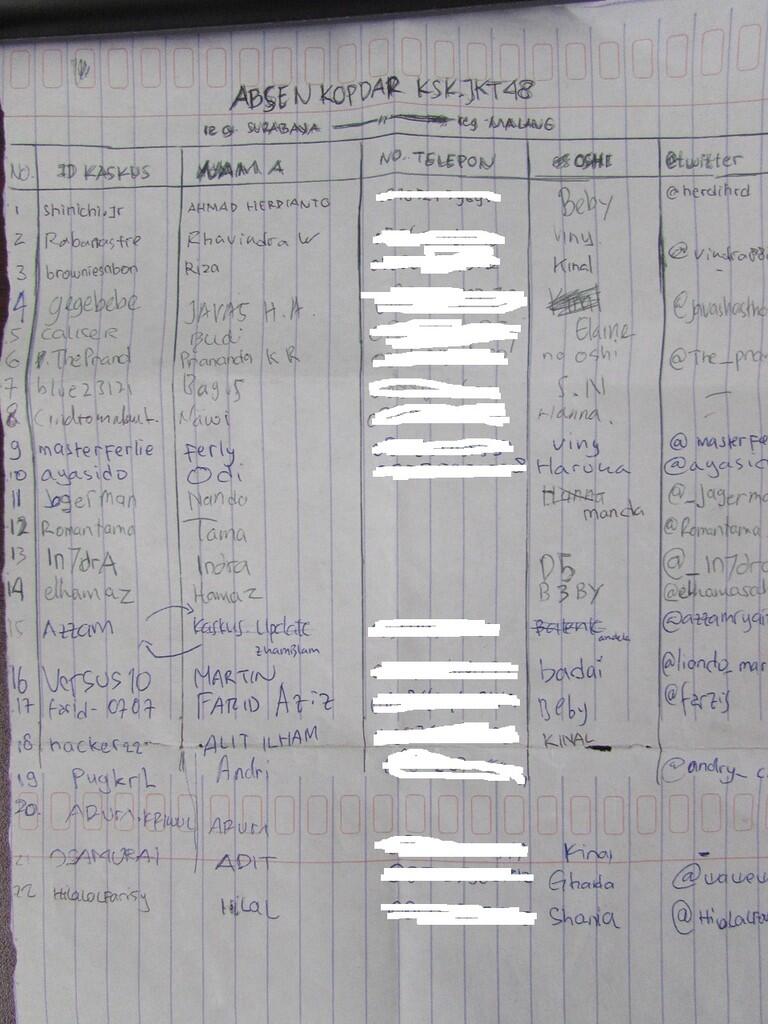 ABSEN KOPDAR KSK.JKT48
reg. SURABAYA reg. MALANG
NO. ID KASKUS NAMA NO. TELEPON OSHI @twitter
1 Shinichi.Jr AHMAD HERDIANTO Beby @herdihrd
2 Rabanastre Rhavindra W Viny @vindra88
3 browniesabon Riza Kinal -
4 gegebebe JAVAS H.A.
5 Budi Elaine
6 Prananda K R no oshi @The_
7 blue23121 Bagus S.N -
8 Nawi Hanna.
9 masterferlie Ferly viny @masterfe
10 ayasido Odi Haruka @ayasid
11 Jagerman Nando manda @_Jagerma
12 Romantama Tama @Romantama
13 In7drA Indra D5 @_In7dr
14 elhamaz Hamaz B3BY @elhamasa
15 Azzam Kaskus Update
zhamblam
16 Versus10 MARTIN badai @liondo_mar
17 farid-0707 FARID Aziz Beby @farzij
18 hacker22 ALIT ILHAM KINAL
19 Andri @andry_
20. ARUM
21 OSAMURAI ADIT Kinal -
22 Hilalalfarisy Hilal Ghaida
Shania @Hilalalfa